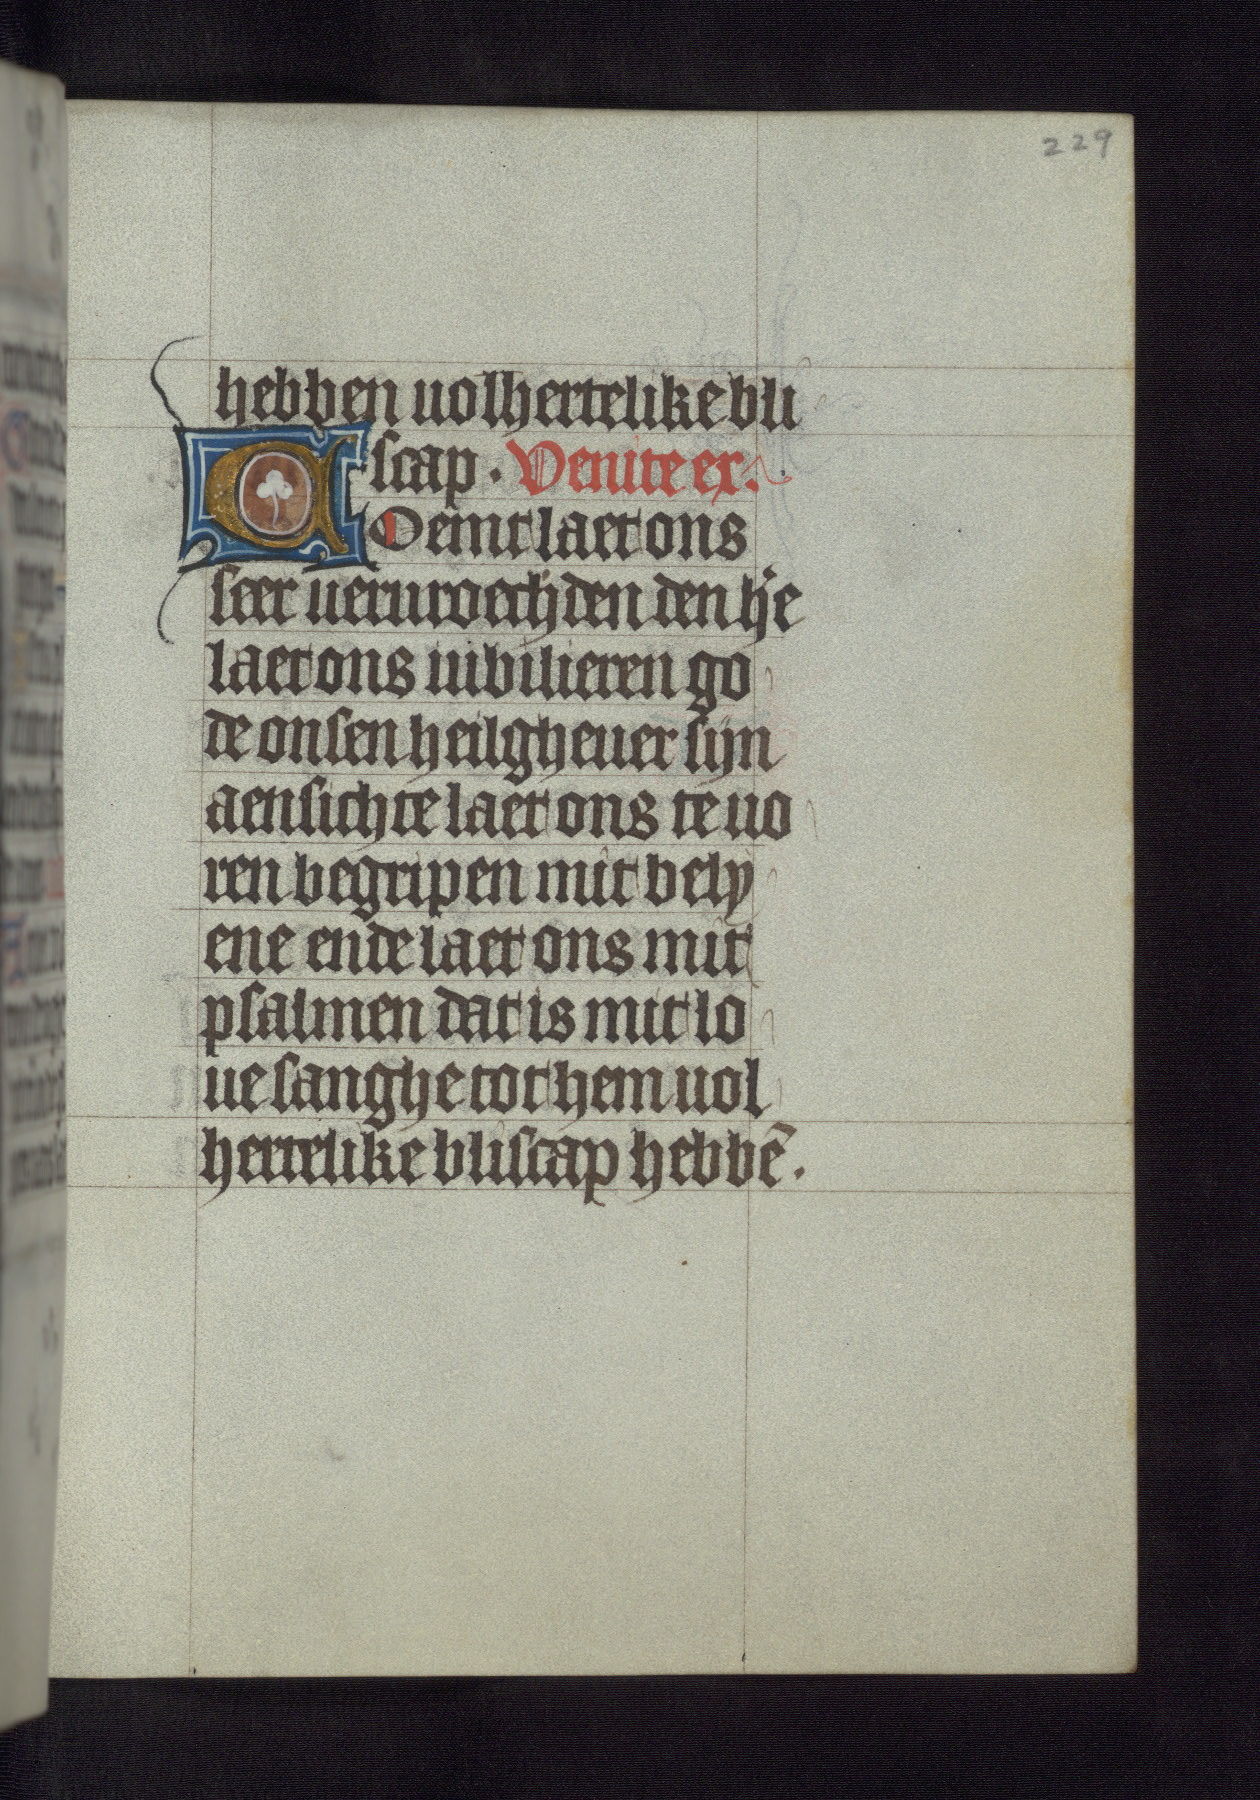 229
hebben uolhertelike bli
scap. Venite ex.
COemt laet ons
seer ueruroechden den h'e
laet ons iubilieren go
de onsen heilgheuer sijn
aensichte laet ons te uo
ren begripen mit bely
ene ende laet ons mit
psalmen dat is mit lo
ue sanghe tot hem uol
hertelike bliscap hebbē.